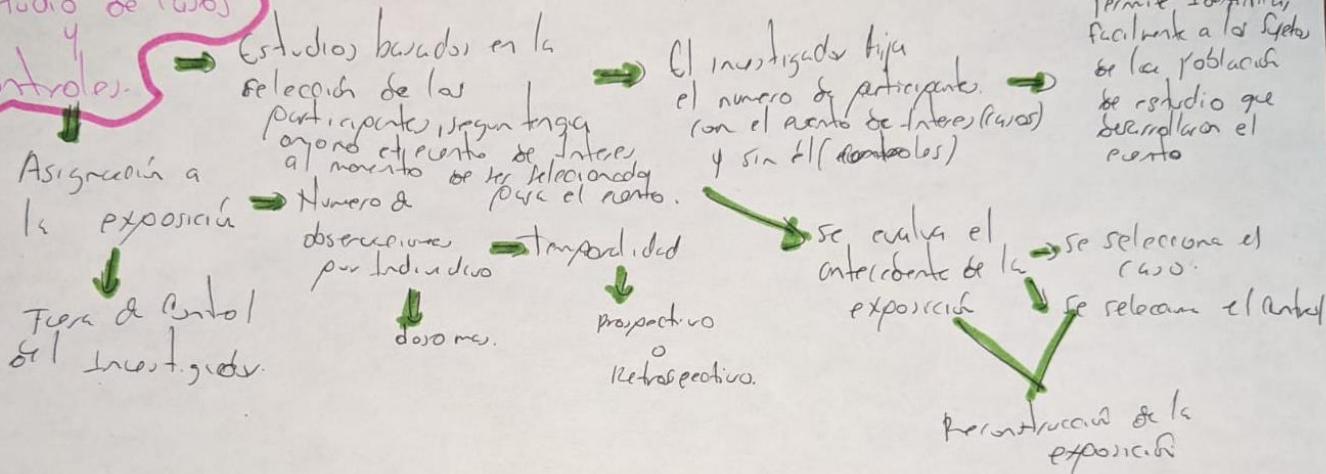 de casos
y
ntroles.
Estudios basados en la
selección de los
participantes, segun tenga
o no el evento de Interes
al momento de ser seleccionado
para el evento.
El investigador fija
el numero de participantes
con el evento de Interes (casos)
y sin él (controles)
facilmente a los sujetos
de la población
de estudio que
desarrollaron el
evento
Asignación a
la exposición
Fuera de Control
del Investigador.
Numero de
observaciones
por Individuo
dos o mas.
temporalidad
Prospectivo
o
Retrospectivo.
Se evalua el
antecedente de la
exposición
se selecciona el
caso.
Se selecciona el control
Reconstrucción de la
exposición